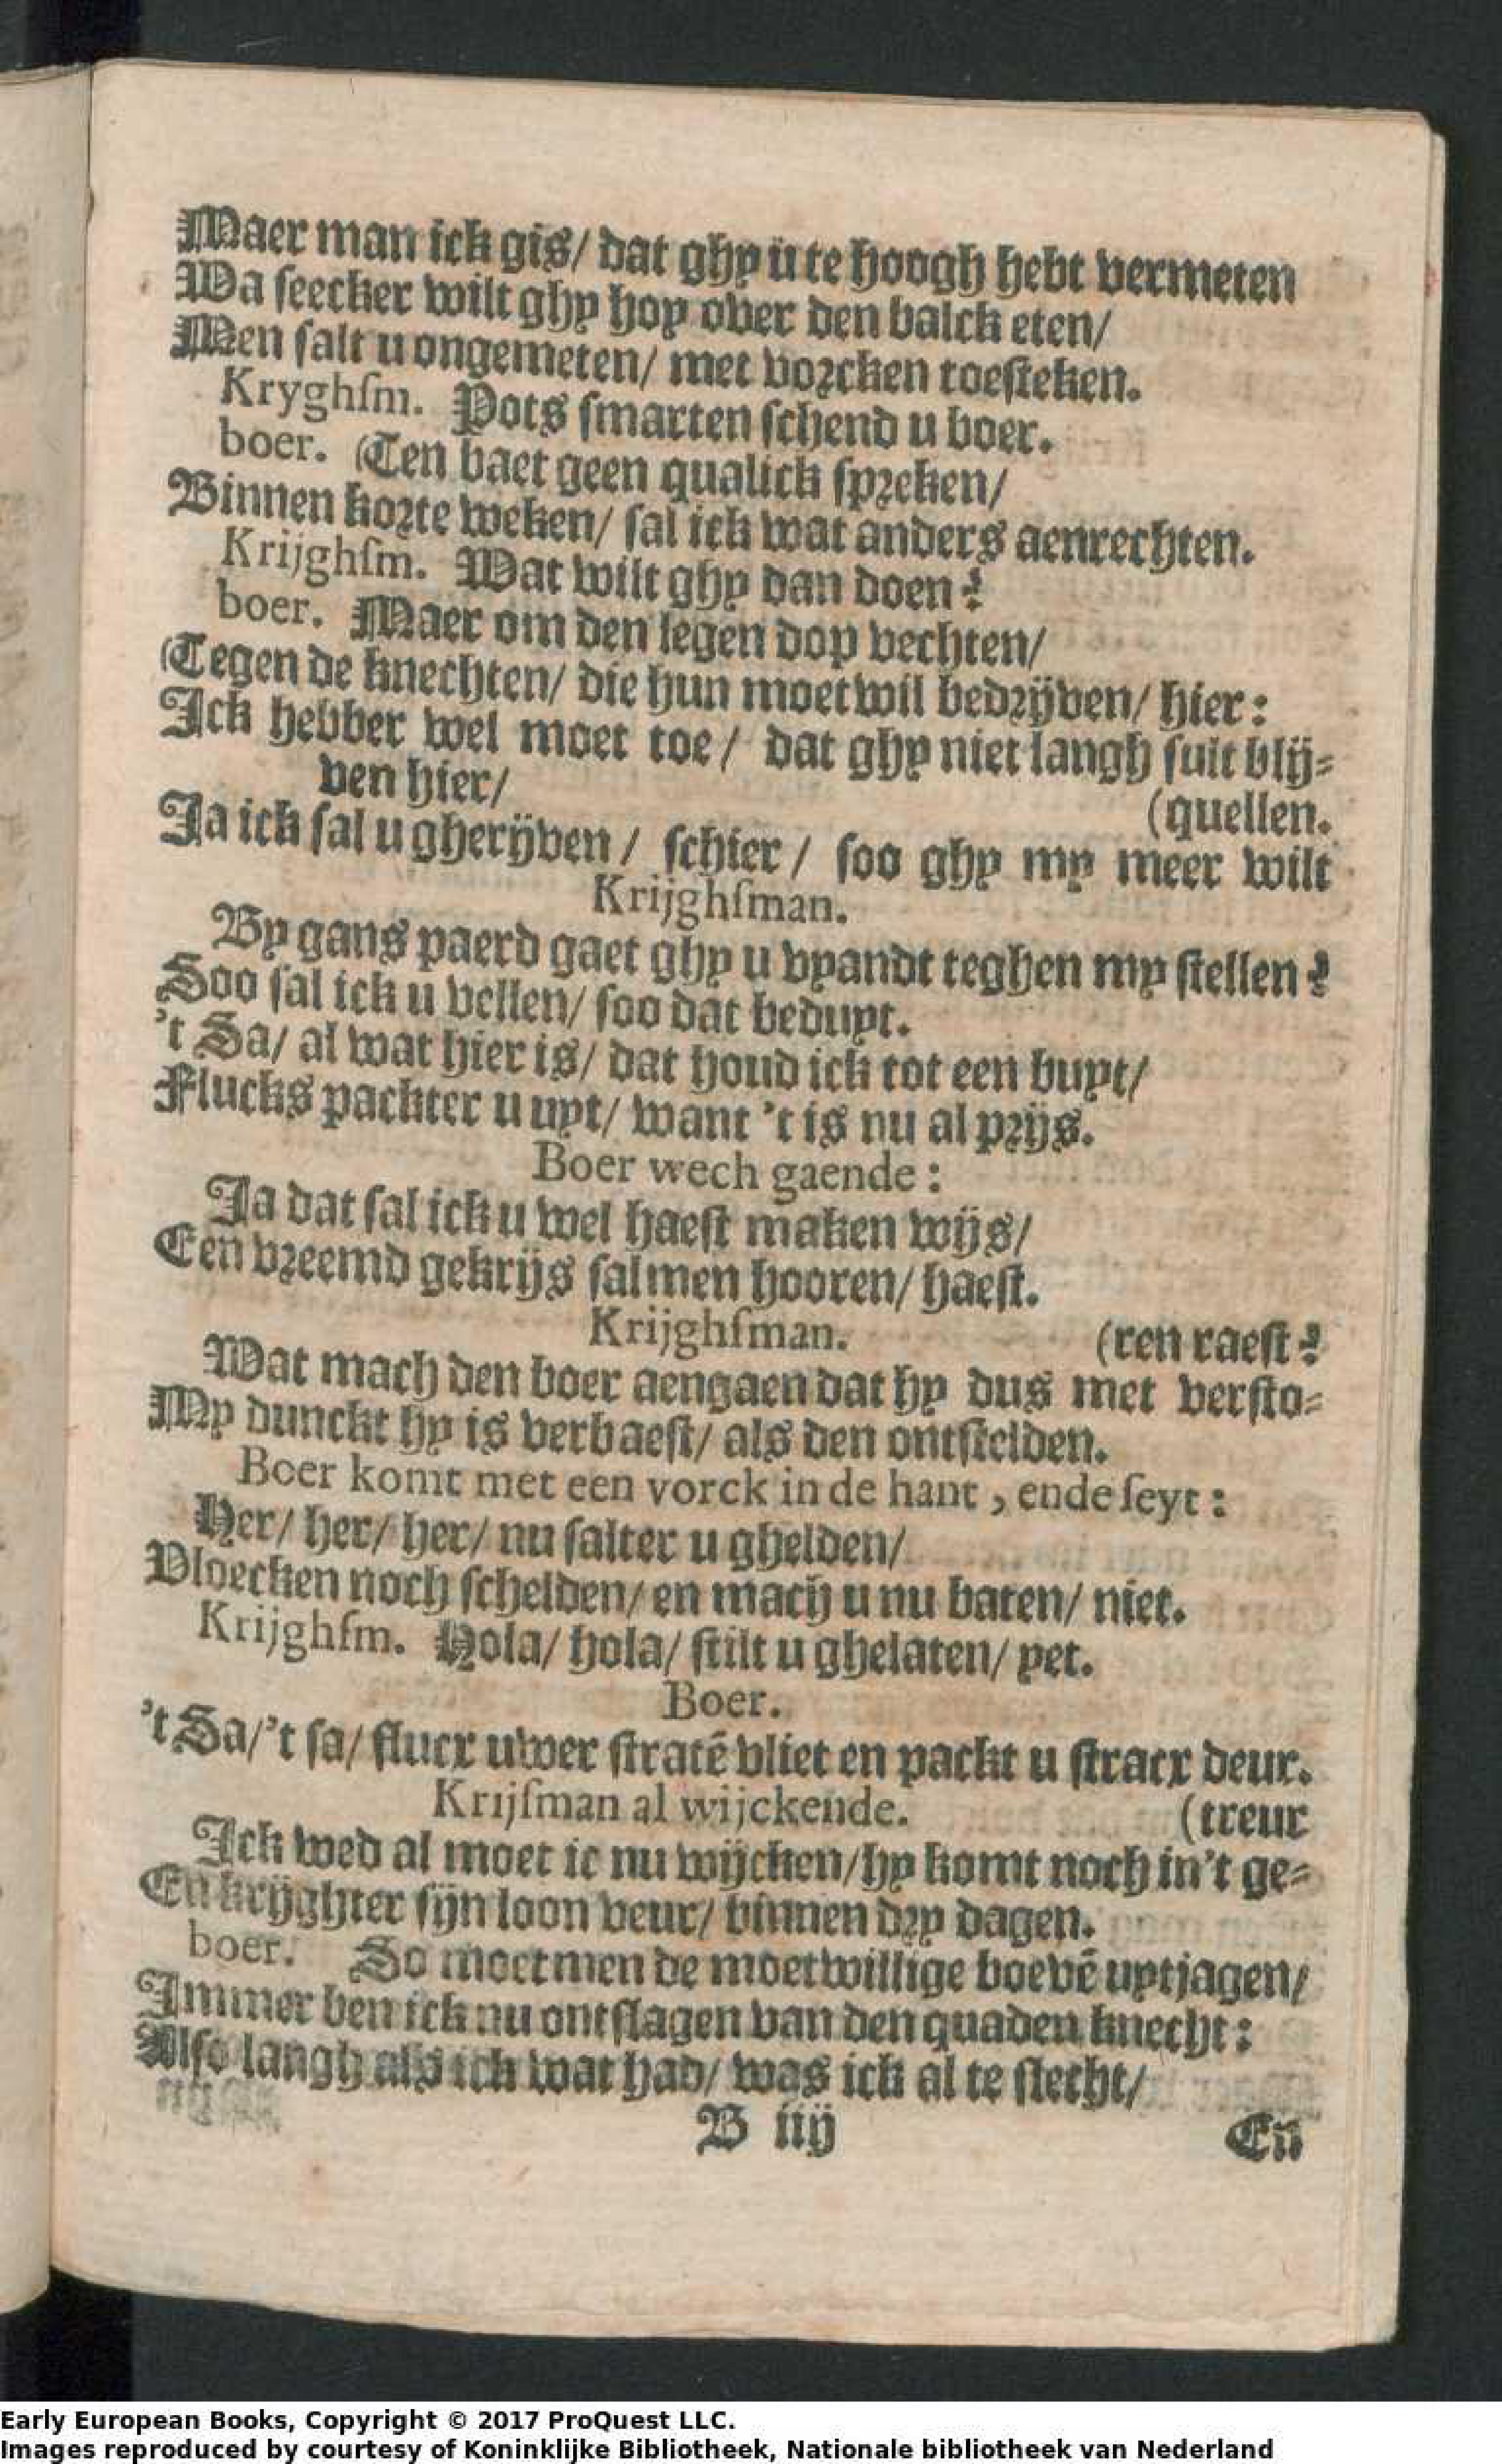 Maer man ick gis/ dat ghy ü te hoogh hebt vermeten
Wa seecker wilt ghy hoy over den balck eten/
Men salt u ongemeten/ met vorcken toesteken.
Kryghſm. Pots ſmarten ſchend u boer.
boer. Ten baet geen qualick ſpreken/
Binnen korte weken/ ſal ick wat anders aenrechten.
Krijghſm. Wat wilt ghy dan doen?
boer. Maer om den legen dop vechten/
Tegen de knechten/ die hun moetwil bedrijven/ hier:
Ick hebber wel moet toe/ dat ghy niet langh ſult blij-
ven hier/
(quellen.
Ja ick ſal u gherijven/ ſchier/ ſoo ghy my meer wilt
Krijghſman.
By gans paerd gaet ghy u vyandt teghen my ſtellen?
Soo ſal ick u vellen/ ſoo dat beduyt.
't Sa/ al wat hier is/ dat houd ick tot een buyt/
Flucks packter u uyt/ want 't is nu al prijs.
Boer wech gaende:
Ja dat ſal ick u wel haeſt maken wijs/
Een vreemd gekrijs ſalmen hooren/ haeſt.
Krijghſman. (ren raeſt?
Wat mach den boer aengaen dat hy dus met verſto-
My dunckt hy is verbaeſt/ als den ontſtelden.
Boer komt met een vorck in de hant, ende ſeyt:
Her/ her/ her/ nu ſalter u ghelden/
Vloecken noch ſchelden/ en mach u nu baten/ niet.
Krijghſm. Hola/ hola/ ſtilt u ghelaten/ yet.
Boer.
't Sa/'t ſa/ flucx uwer ſtratē vliet en packt u ſtracx deur.
Krijſman al wijckende. (treur
Ick wed al moet ic nu wijcken/hy komt noch in't ge-
En krijghter ſijn loon veur/ binnen dry dagen.
boer. So moetmen de moetwillige boevē uytjagen/
Immer ben ick nu ontſlagen van den quaden knecht:
Alſo langh als ick wat had/ was ick al te ſlecht/
B iiij
Eñ
Early European Books, Copyright © 2017 ProQuest LLC.
Images reproduced by courtesy of Koninklijke Bibliotheek, Nationale bibliotheek van Nederland